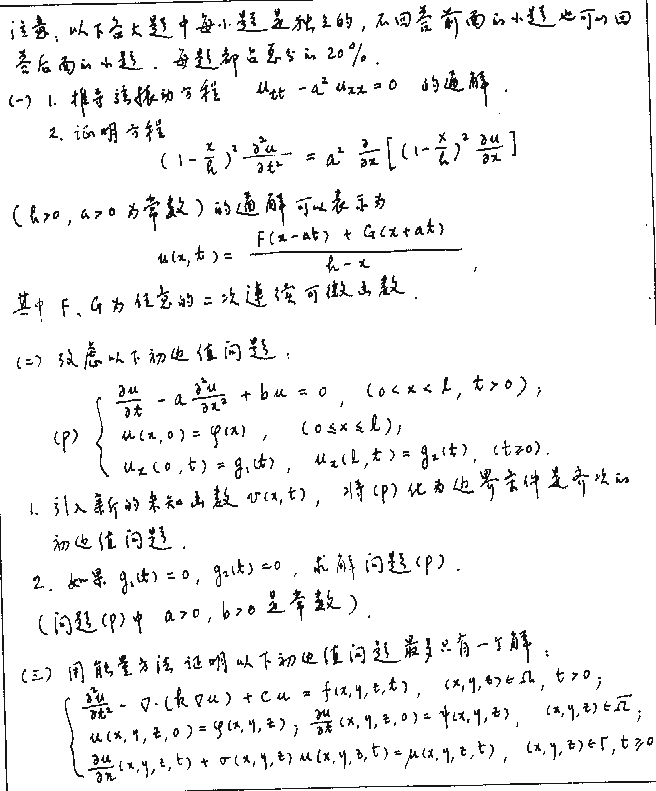 注意:以下各大题中每小题是独立的,不回答前面的小题也可以回
答后面的小题.每题都占总分的20%.
(一) 1. 推导弦振动方程 u_tt - a² u_xx = 0 的通解.
2. 证明方程
(1 - x/h)² ∂²u/∂t² = a² ∂/∂x [(1 - x/h)² ∂u/∂x]
(h>0, a>0 为常数) 的通解可以表示为
u(x,t) = (F(x-at) + G(x+at))/(h-x),
其中 F、G 为任意的二次连续可微函数.
(二) 考虑以下初边值问题:
∂u/∂t - a ∂²u/∂x² + bu = 0, (0<x<l, t>0);
(P) { u(x,0) = φ(x), (0≤x≤l);
u_x(0,t) = g₁(t), u_x(l,t) = g₂(t), (t≥0).
1. 引入新的未知函数 v(x,t), 将(P)化为边界条件是齐次的
初边值问题.
2. 如果 g₁(t)=0, g₂(t)=0, 求解问题(P).
(问题(P)中 a>0, b>0 是常数).
(三) 用能量方法证明以下初边值问题最多只有一个解:
∂²u/∂t² - ∇·(k∇u) + cu = f(x,y,z,t), (x,y,z)∈Ω, t>0;
u(x,y,z,0) = φ(x,y,z); ∂u/∂t(x,y,z,0) = ψ(x,y,z), (x,y,z)∈Ω̅;
∂u/∂n(x,y,z,t) + σ(x,y,z)u(x,y,z,t) = μ(x,y,z,t), (x,y,z)∈Γ, t≥0